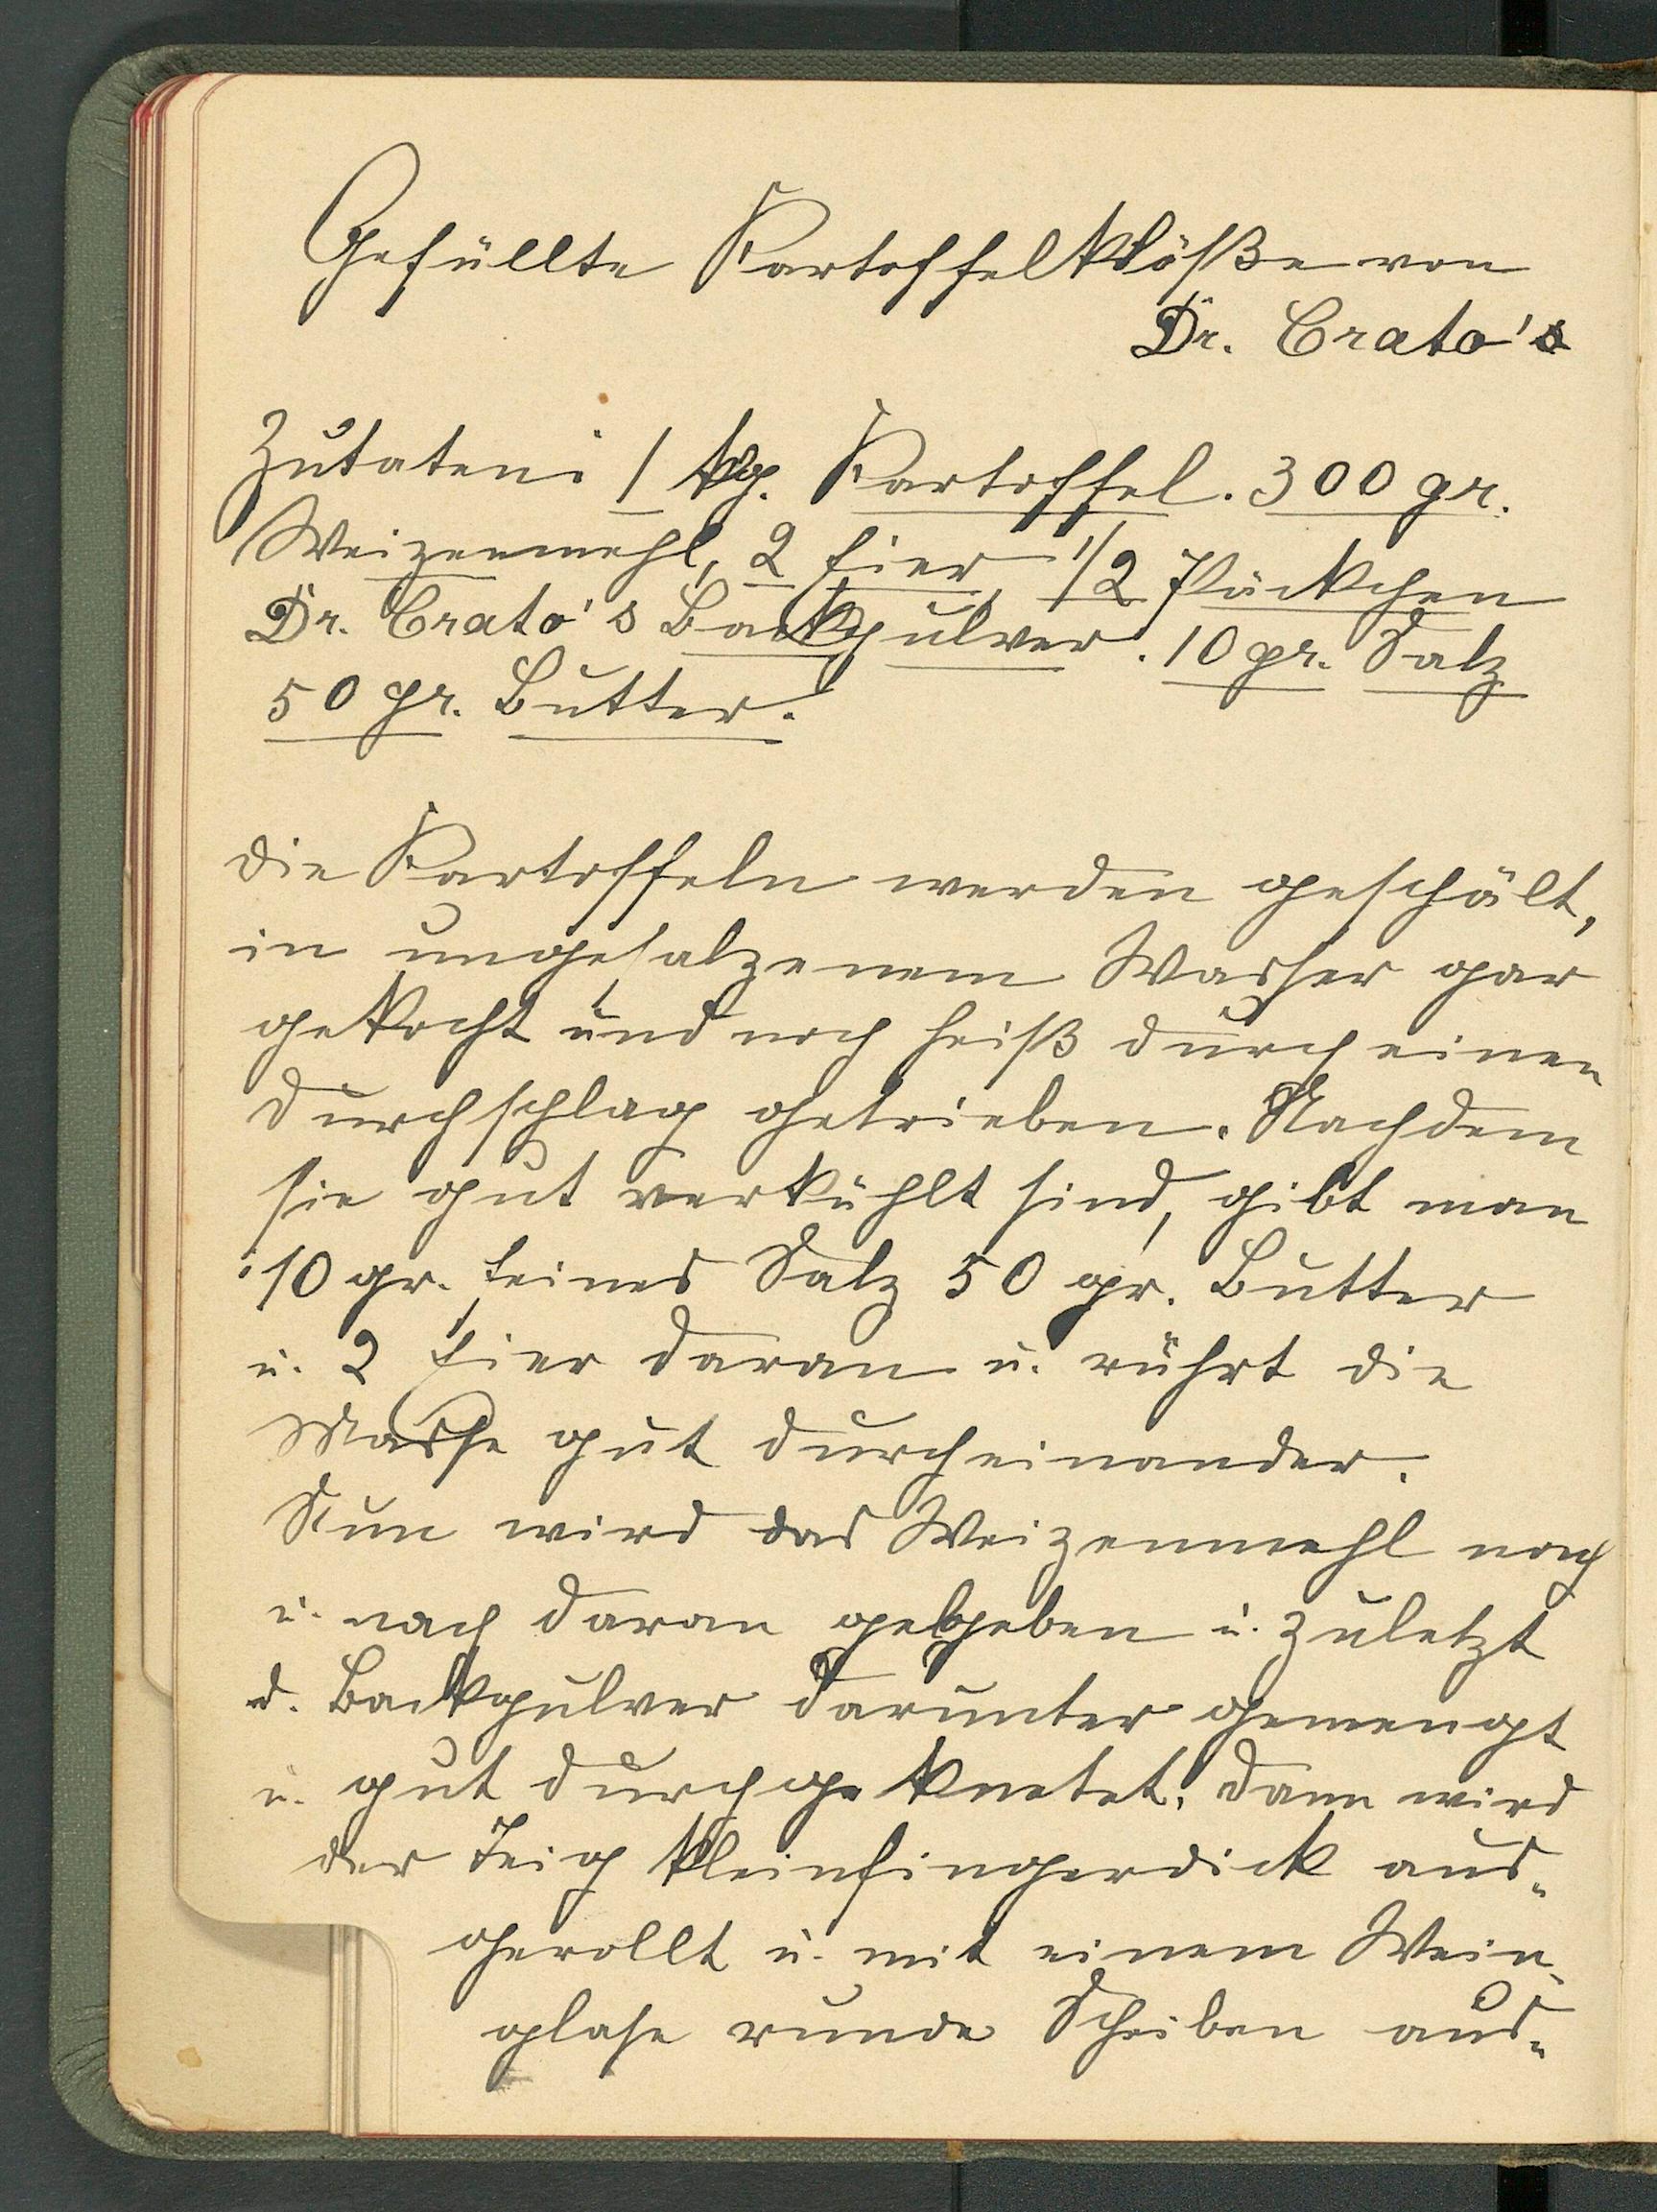 Gefüllte Kartoffelklöße von
Dr. Crato's
Zutaten: 1 kg. Kartoffel. 300 gr.
Weizenmehl, 2 Eier, 1/2 Päckchen
Dr. Crato's Backpulver. 10 gr. Salz
50 gr. Butter.
Die Kartoffeln werden geschält,
in ungesalzenem Wasser gar
gekocht und noch heiß durch einen
Durchschlag getrieben. Nachdem
sie gut verkühlt sind, gibt man
10 gr. feines Salz 50 gr. Butter
u. 2 Eier daran u. rührt die
Masse gut durcheinander.
Nun wird das Weizenmehl nach
u. nach daran gegeben u. zuletzt
d. Backpulver darunter gemengt
u. gut durchgeknetet. Dann wird
der Teig kleinfingerdick aus-
gerollt u. mit einem Wein-
glase runde Scheiben aus-